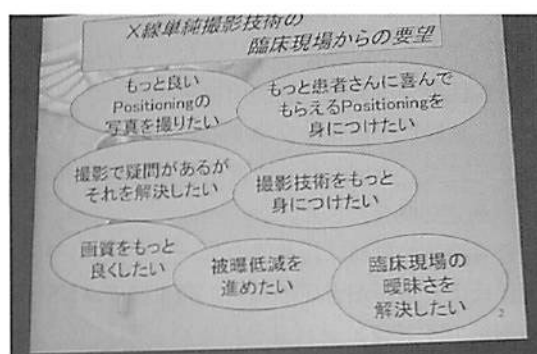 X線単純撮影技術の
臨床現場からの要望
もっと良い
Positioningの
写真を撮りたい
もっと患者さんに喜んで
もらえるPositioningを
身につけたい
撮影で疑問があるが
それを解決したい
撮影技術をもっと
身につけたい
画質をもっと
良くしたい
被曝低減を
進めたい
臨床現場の
曖昧さを
解決したい
2